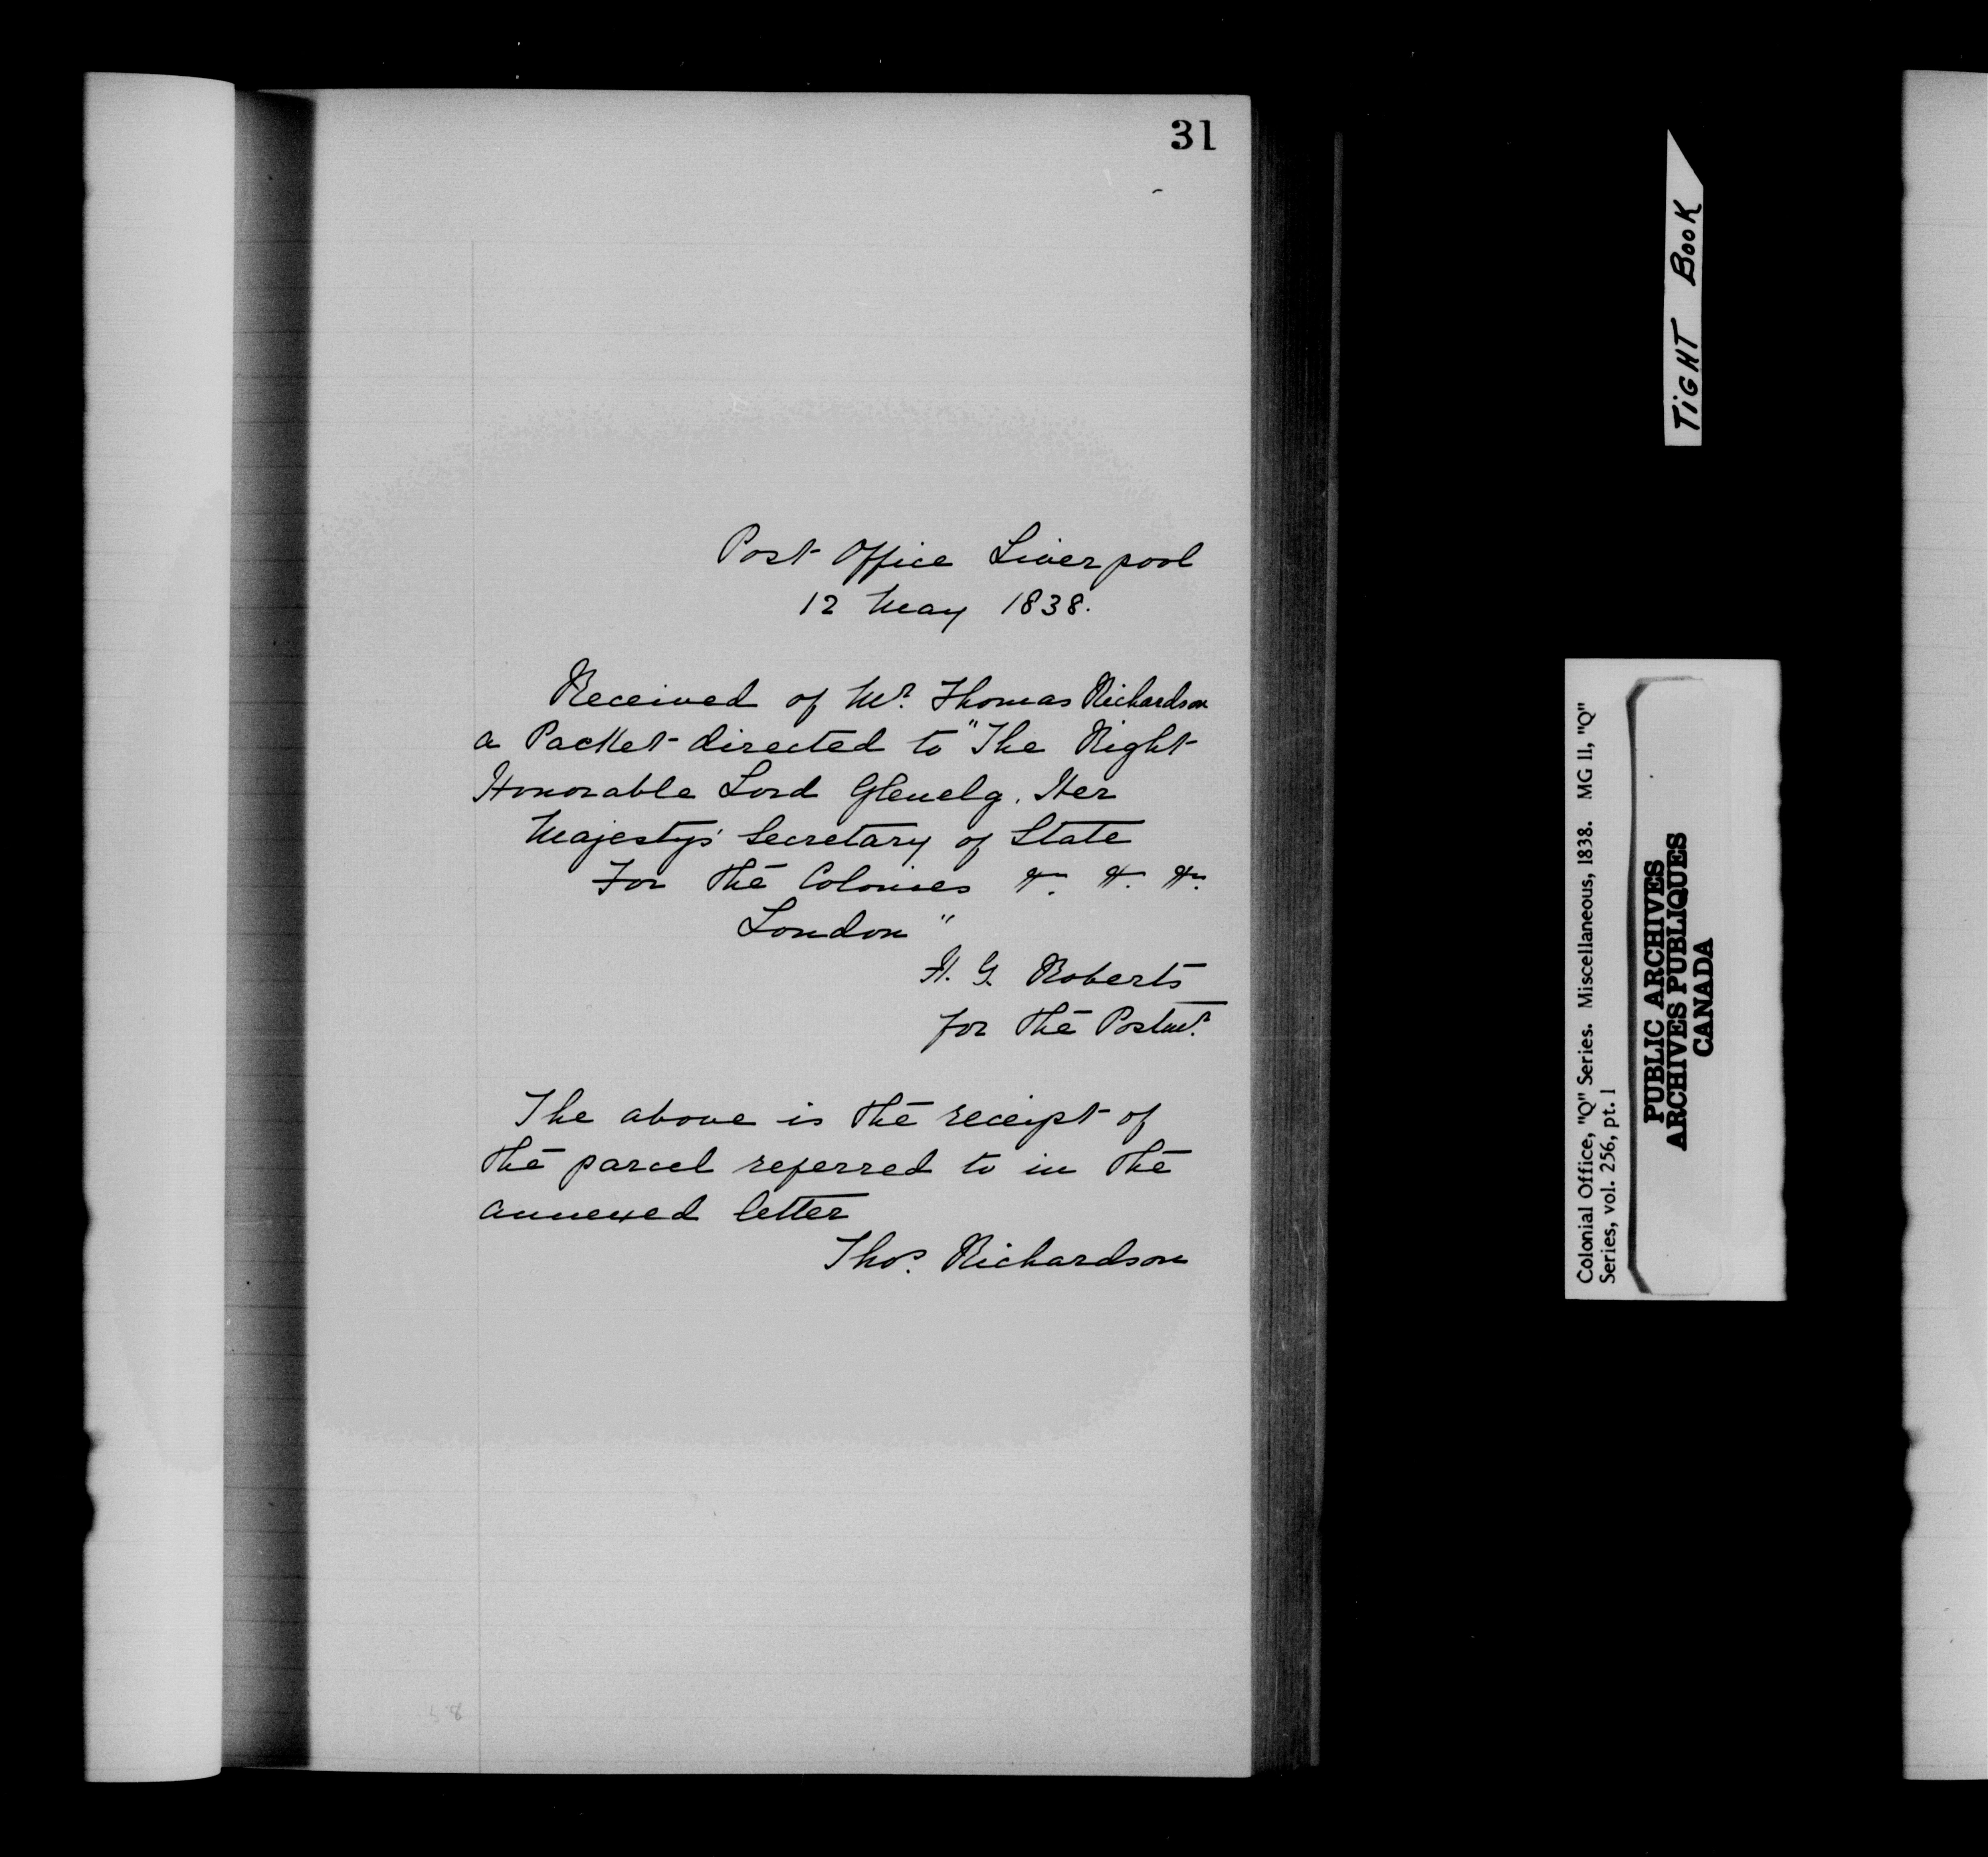 31
Post Office Liverpool
12 May 1838.
Received of Mr. Thomas Richardson
a Packet directed to "The Right
Honorable Lord Glenelg. Her
Majesty's Secretary of State
For the Colonies &c. &c. &c.
London"
H. G. Roberts
for the Postmr.
The above is the receipt of
the parcel referred to in the
annexed letter
Thos. Richardson
TIGHT BOOK
Colonial Office, "Q" Series. Miscellaneous, 1838. MG 11, "Q"
Series, vol. 256, pt. 1
PUBLIC ARCHIVES
ARCHIVES PUBLIQUES
CANADA